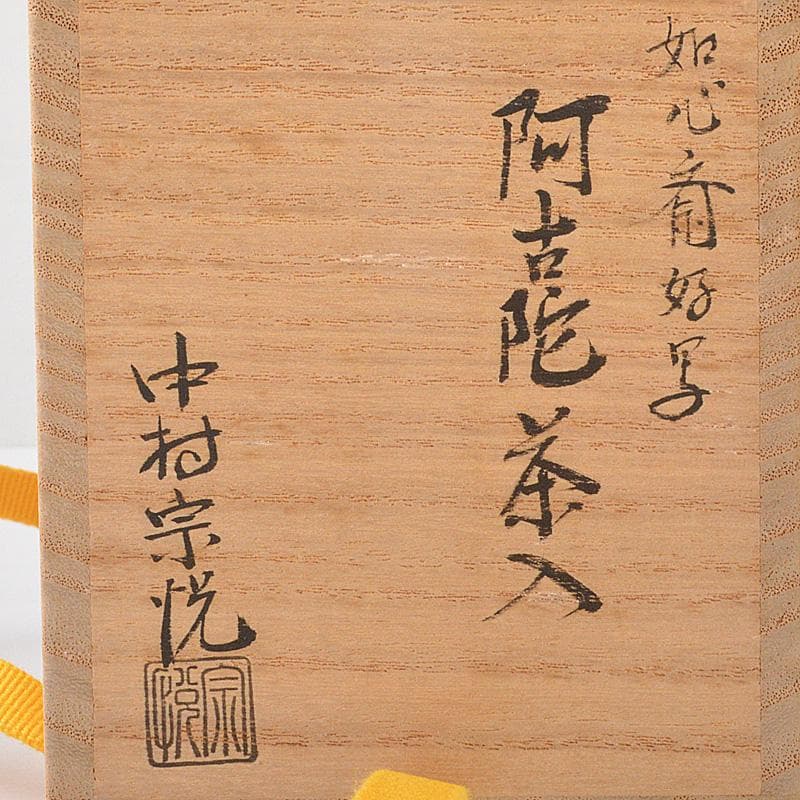 如心斎好写
阿古陀茶入
中村宗悦
宗悦